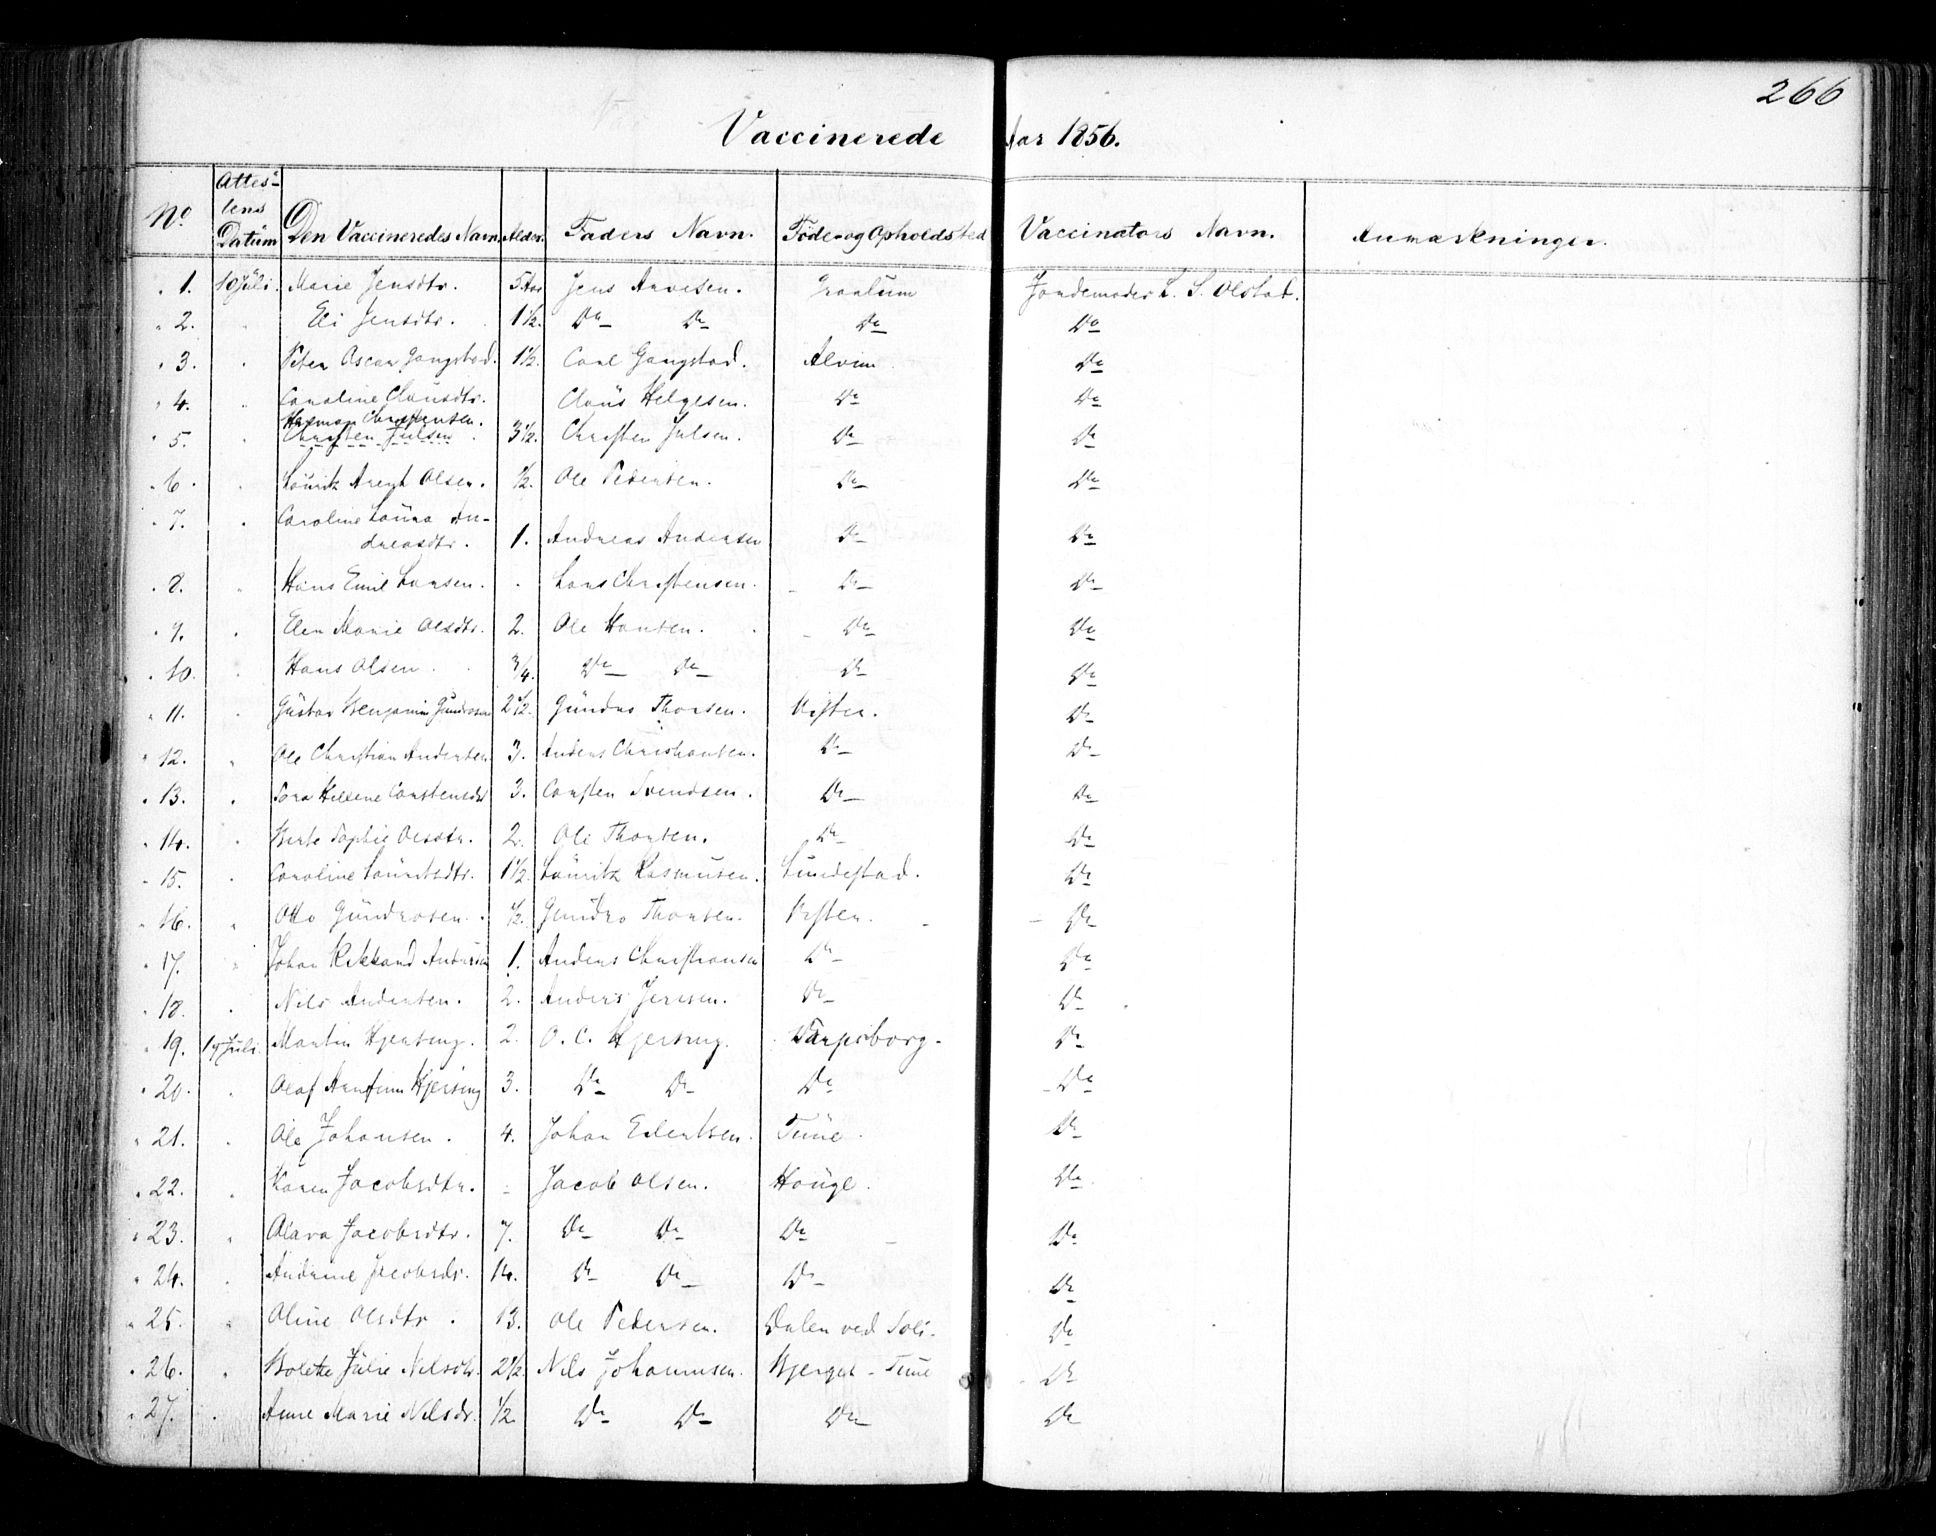 266
Vaccinerede Aar 1856.
No. Attes- tens Datum Den Vaccineredes Navn. Alder. Faders Navn. Føde- og Opholdsted Vaccinators Navn. Anmærkninger.
1. 10 Juli. Marie Jensdtr. 5 Aar Jens Arvesen. Graalum Jordemoder L. S. Olstad.
2. " Eli Jensdtr. 1½. Do Do Do Do
3. " Peter Oscar Gangstad. 1½. Carl Gangstad. Alvim Do
4. " Caroline Clausdtr. Claus Helgesen. Do Do
Herman Christensen.
5. " Christen Julsen. 3½. Christen Julsen. Do Do
6. " Lauritz Arent Olsen. ½. Ole Pedersen. Do Do
7. " Caroline Laura An-
dreasdtr. 1. Andreas Andersen Do Do
8. " Hans Emil Larsen. " Lars Christensen. Do Do
9. " Elen Marie Olsdtr. 2. Ole Hansen. Do Do
10. " Hans Olsen. ¾. Do Do Do Do
11. " Gustav Benjamin Gundrosen 2½. Gundro Thorsen. Visten. Do
12. " Ole Christian Andersen 3. Anders Christiansen. Do Do
13. " Sara Hellene Carstensdtr 3. Carsten Svendsen. Do Do
14. " Berte Sophie Olsdtr. 2. Ole Thorsen. Do Do
15. " Caroline Lauritsdtr. 1½. Lauritz Rasmusen. Lundestad. Do
16. " Otto Gundrosen. ½. Gundro Thorsen. Visten. Do
17. " Johan Rikkard Andersen 1. Anders Christiansen Do Do
18. " Nils Andersen. 2. Anders Jensen. Do Do
19. 19 Juli. Martin Hjersing. 2. O. C. Hjersing. Sarpsborg. Do
20. " Olaf Hjersing 3. Do Do Do Do
21. " Ole Johansen. 4. Johan Tune. Do
22. " Karen Jacobsdtr. - Jacob Olsen. Houge. Do
23. " Olava Jacobsdtr. 7. Do Do Do Do
24. " Andrine Jacobsdr. 14. Do Do Do Do
25. " Oline Olsdtr. 13. Ole Pedersen. Dalen ved Soli. Do
26. " Bolette Julie Nilsdtr. 2½. Nils Johannesen. Bjerget - Tune Do
27. " Anne Marie Nilsdr. ½. Do Do Do Do